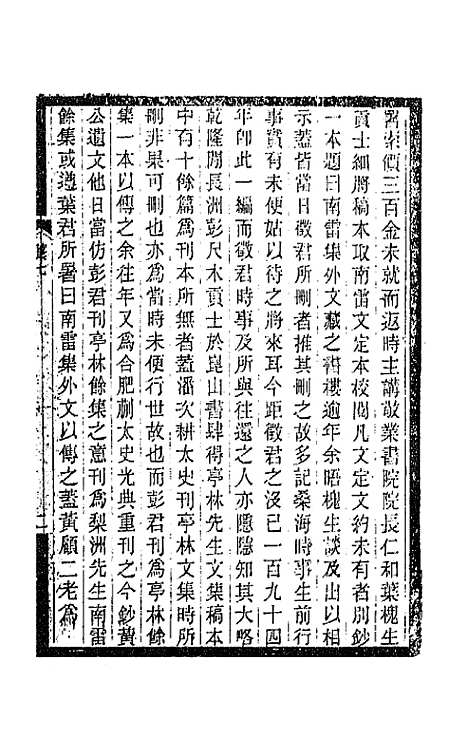 索價三百金未就而返時主講敬業書院院長仁和葉槐生
貢士細將稿本取南雷文定本校閱凡文定文約未有者別鈔
一本題曰南雷集外文藏之書樓逾年余晤槐生談及出以相
示蓋皆當日徵君所刪者推其刪之故多記桑海時事生前行
事實有未便姑以待之將來耳今距徵君之沒已一百九十四
年卽此一編而徵君時事及所與往還之人亦隱隱知其大略
乾隆閒長洲彭尺木貢士於崑山書肆得亭林先生文集稿本
中有十餘篇爲刊本所無者蓋潘次耕太史刊亭林文集時所
刪非果可刪也亦爲當時未便行世故也而彭君刊爲亭林餘
集一本以傳之余往年又爲合肥蒯太史光典重刊之今鈔黃
公遺文他日當仿彭君刊亭林餘集之意刊爲梨洲先生南雷
餘集或遵葉君所署曰南雷集外文以傳之蓋黃顧二老爲